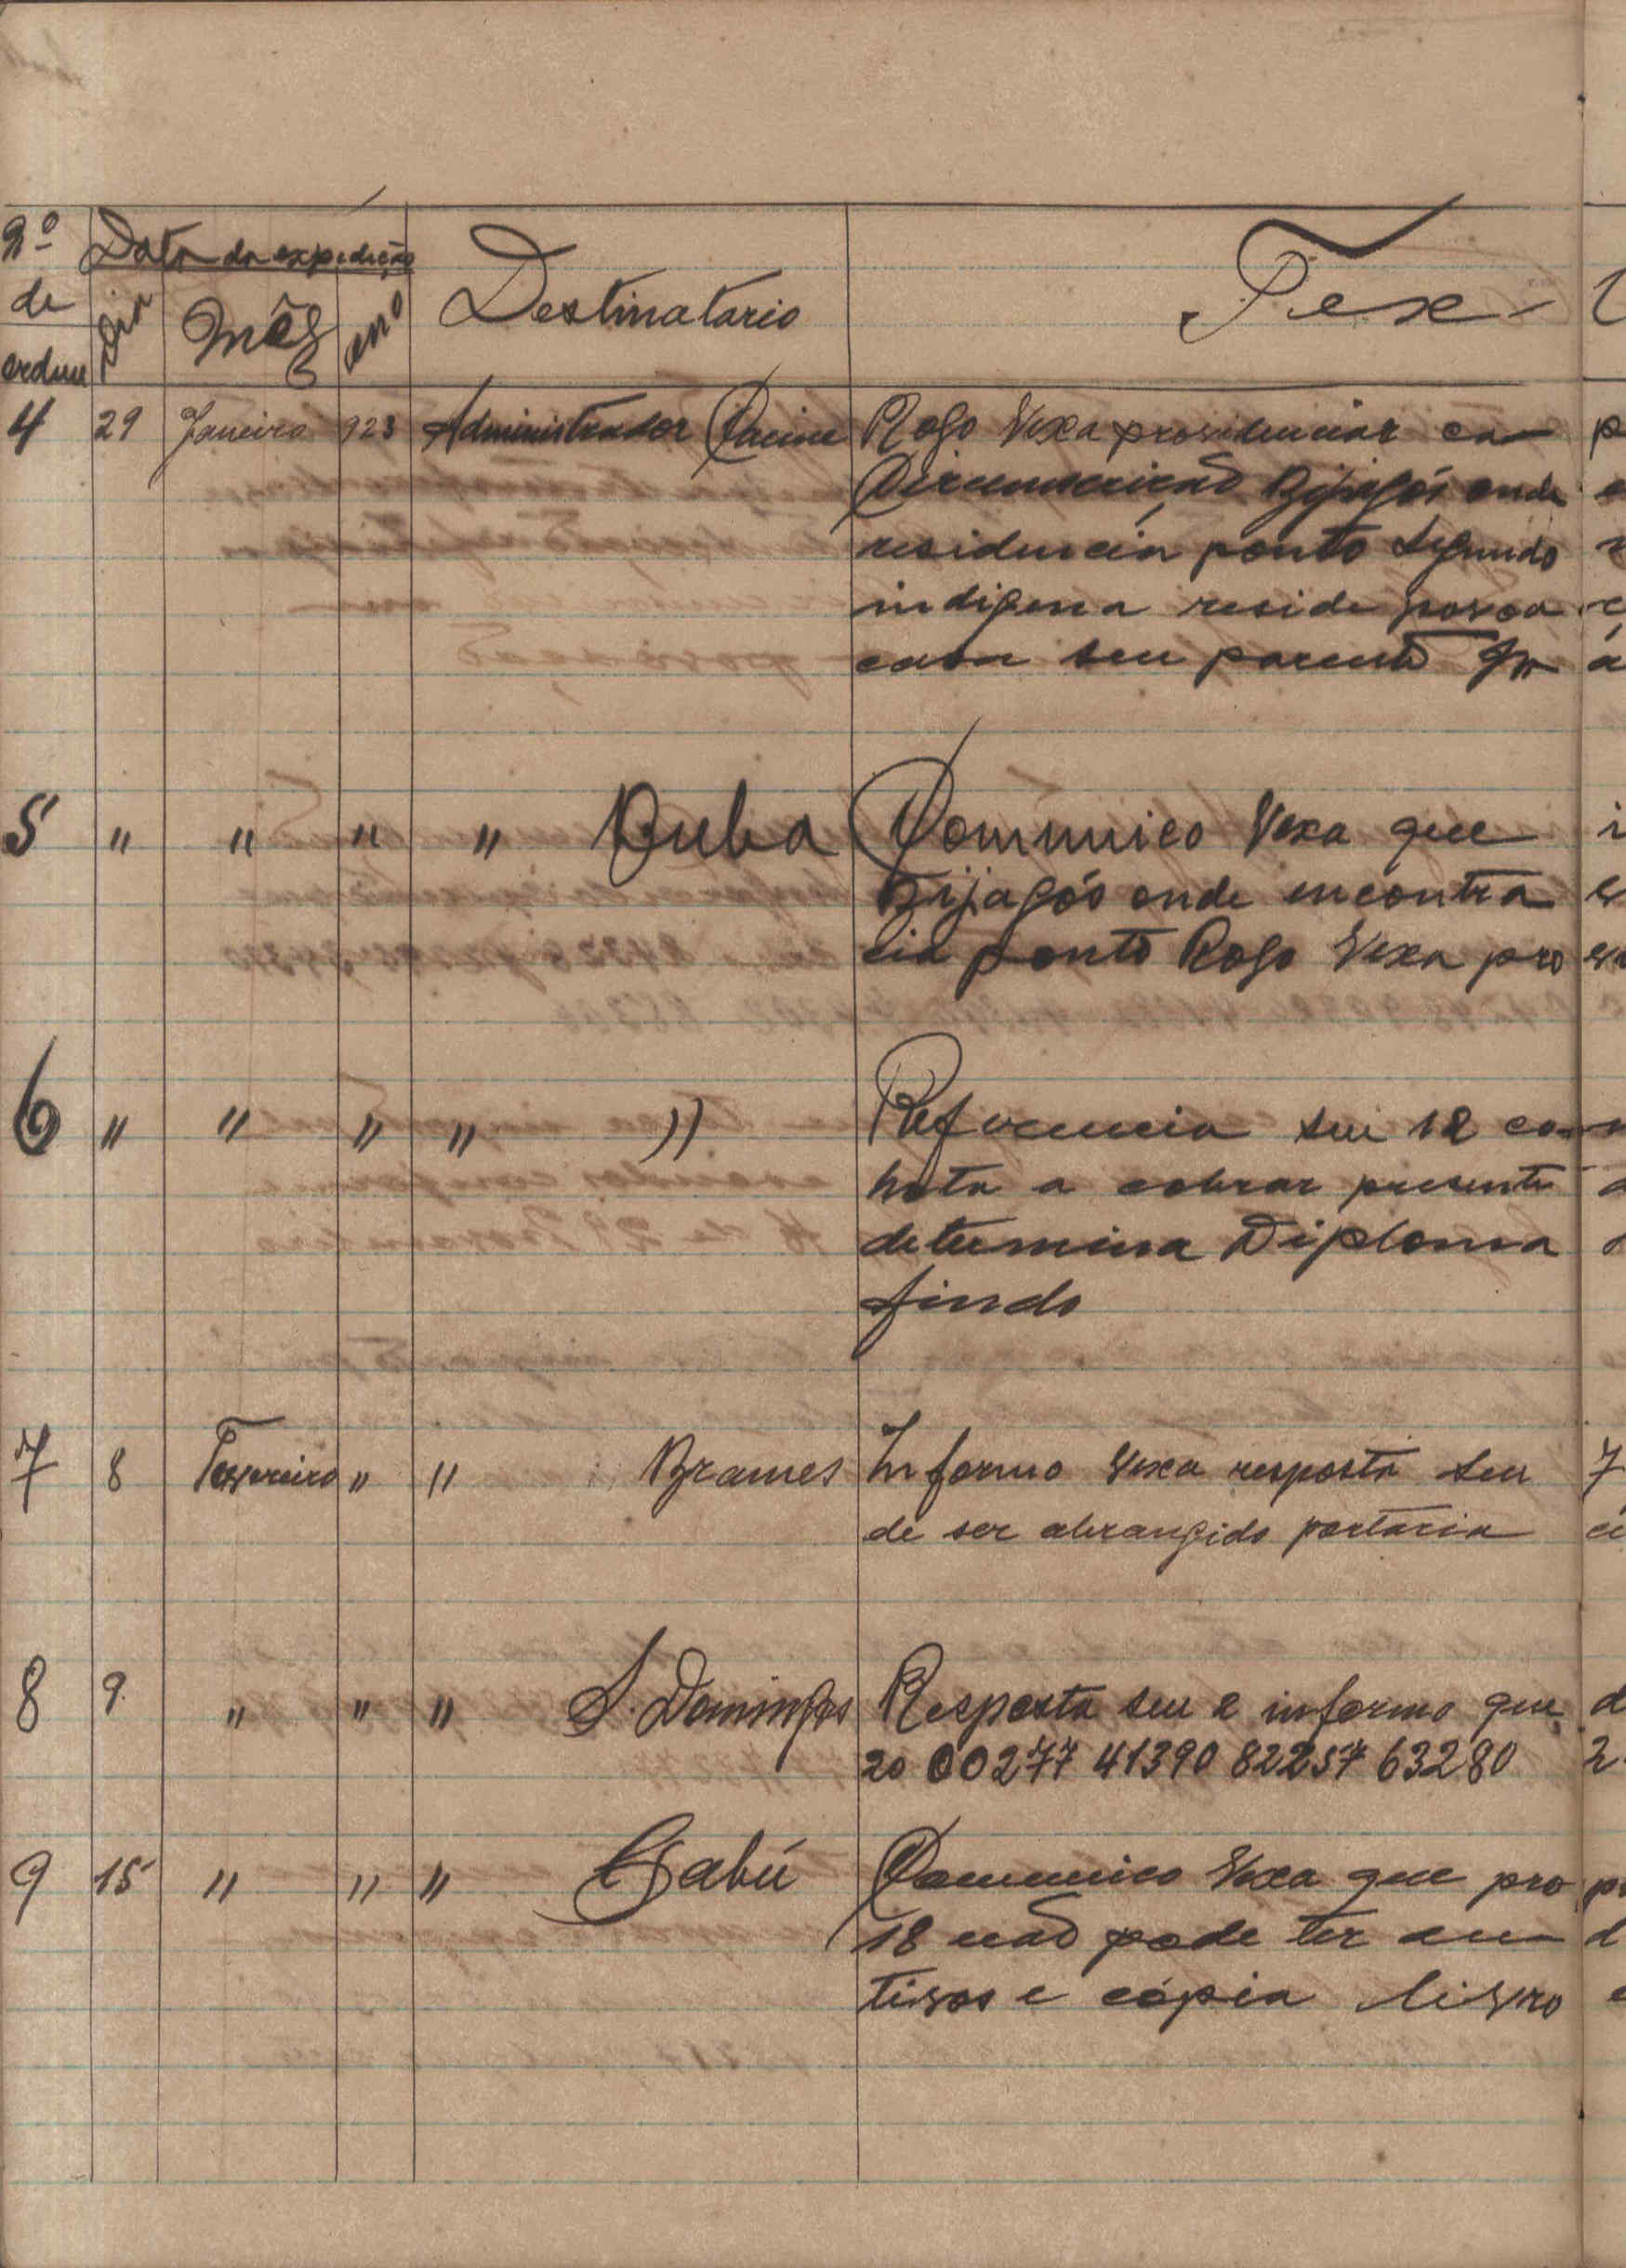 Nº
de
ordem
Data da expedição
Dia Mês ano
Destinatario
Tex
4 29 Janeiro 923 Administrador Cacine Rogo Vexa providenciar ca
Circunscrição Bijagós onde
residencia ponto Segundo
indigena reside povoa
casa seu parente
5 " " " " Buba Comunico Vexa que
Bijagós onde encontra
cia ponto Rogo Vexa pro
6 " " " " " Referencia seu 12 com
hota a cobrar presente
determina Diploma
findo
7 8 Fevereiro " " Brames Informo Vexa resposta seu
de ser abrangido portaria
8 9 " " " S. Domingos Resposta seu 2 informo que
20 00277 41390 82257 63280
9 15 " " " Gabú Comunico Vexa que pro
18 não pode ter
tivos e cópia livro